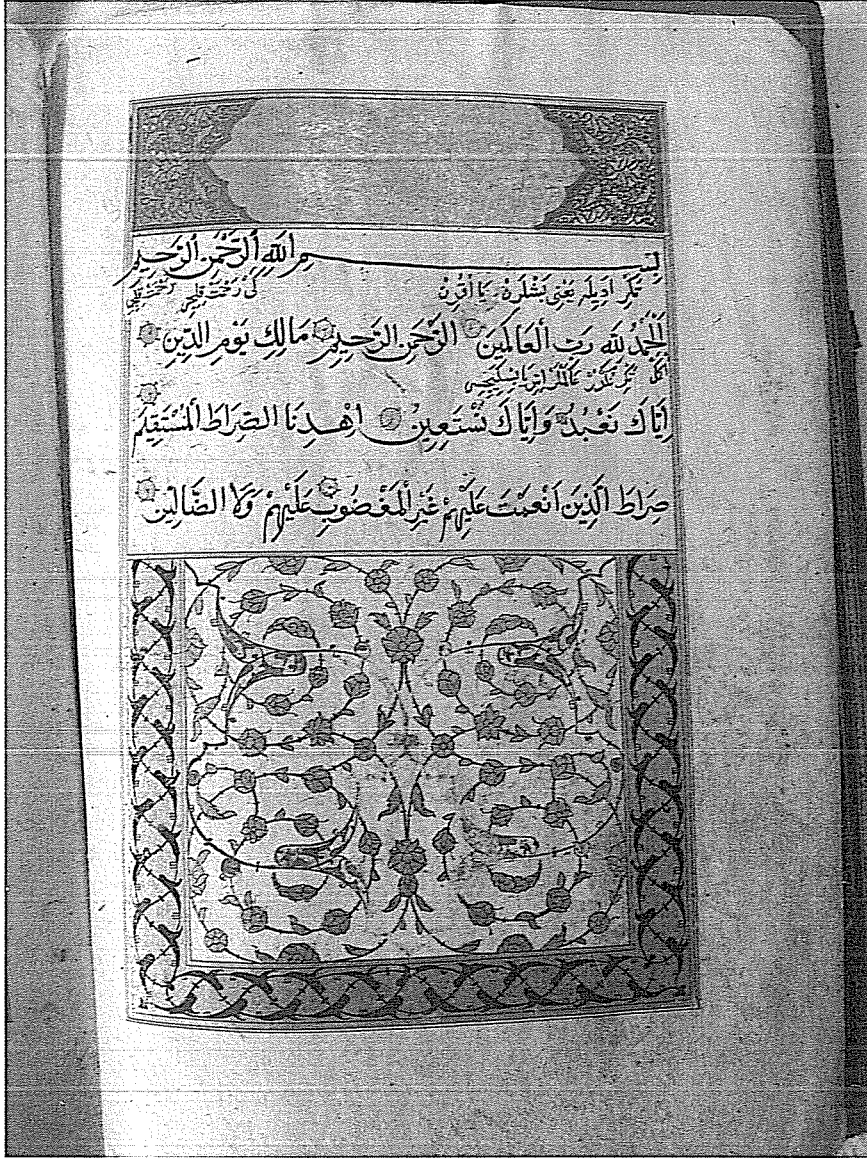 بِسْمِ اللّٰهِ الرَّحْمٰنِ الرَّحِيمِ
تكرى اديله يعنى بشلره يا اقرن
اَلْحَمْدُ لِلّٰهِ رَبِّ الْعَالَمِينَ الرَّحْمٰنِ الرَّحِيمِ مَالِكِ يَوْمِ الدِّينِ
اِيَّاكَ نَعْبُدُ وَاِيَّاكَ نَسْتَعِينُ اِهْدِنَا الصِّرَاطَ الْمُسْتَقِيمَ
صِرَاطَ الَّذِينَ اَنْعَمْتَ عَلَيْهِمْ غَيْرِ الْمَغْضُوبِ عَلَيْهِمْ وَلَا الضَّالِّينَ